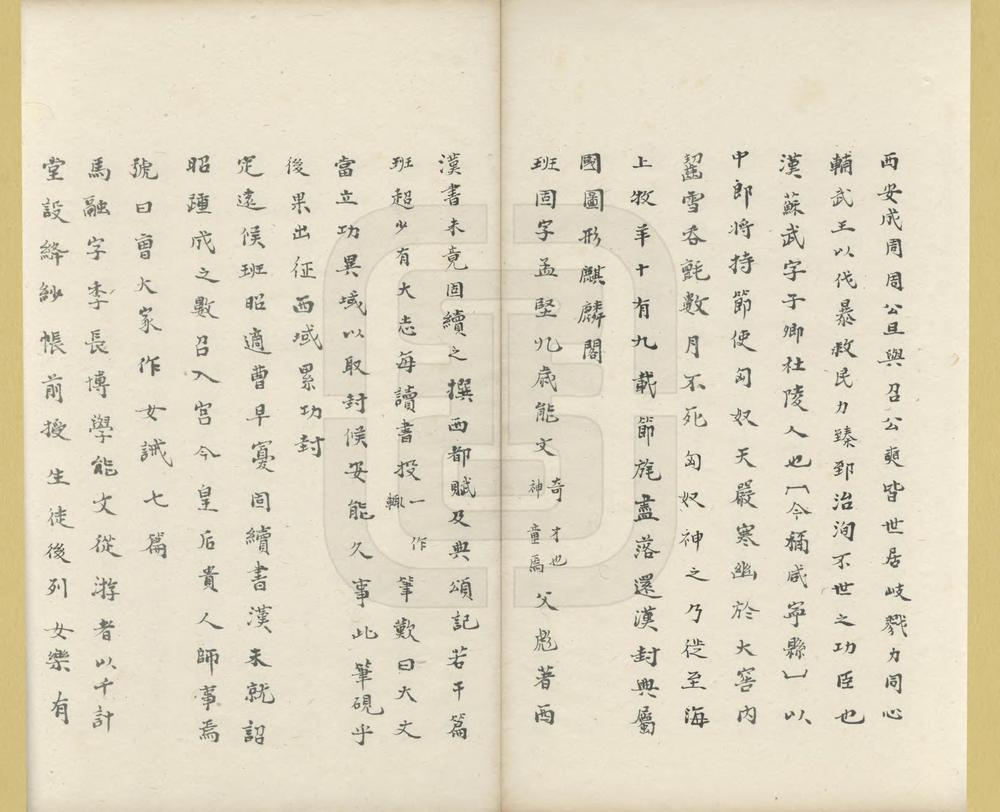 西安成周周公旦與召公奭皆世居岐戮力同心
輔武王以伐暴救民力臻郅治洵不世之功臣也
漢蘇武字子卿杜陵人也〔今稱咸寧縣〕以
中郎將持節使匈奴天嚴寒幽於大窖內
齧雪吞氈數月不死匈奴神之乃徙至海
上牧羊十有九載節旄盡落還漢封典屬
國圖形麒麟閣
班固字孟堅九歲能文奇才也神童焉父彪著西
漢書未竟固續之撰西都賦及典頌記若干篇
班超少有大志每讀書投一作輒筆歎曰大丈
當立功異域以取封候安能久事此筆硯乎
後果出征西域累功封
定遠候班昭適曹早寡固續書漢未就詔
昭踵成之數召入宮令皇后貴人師事焉
號曰曹大家作女誡七篇
馬融字季長博學能文從游者以千計
堂設絳紗帳前授生徒後列女樂有